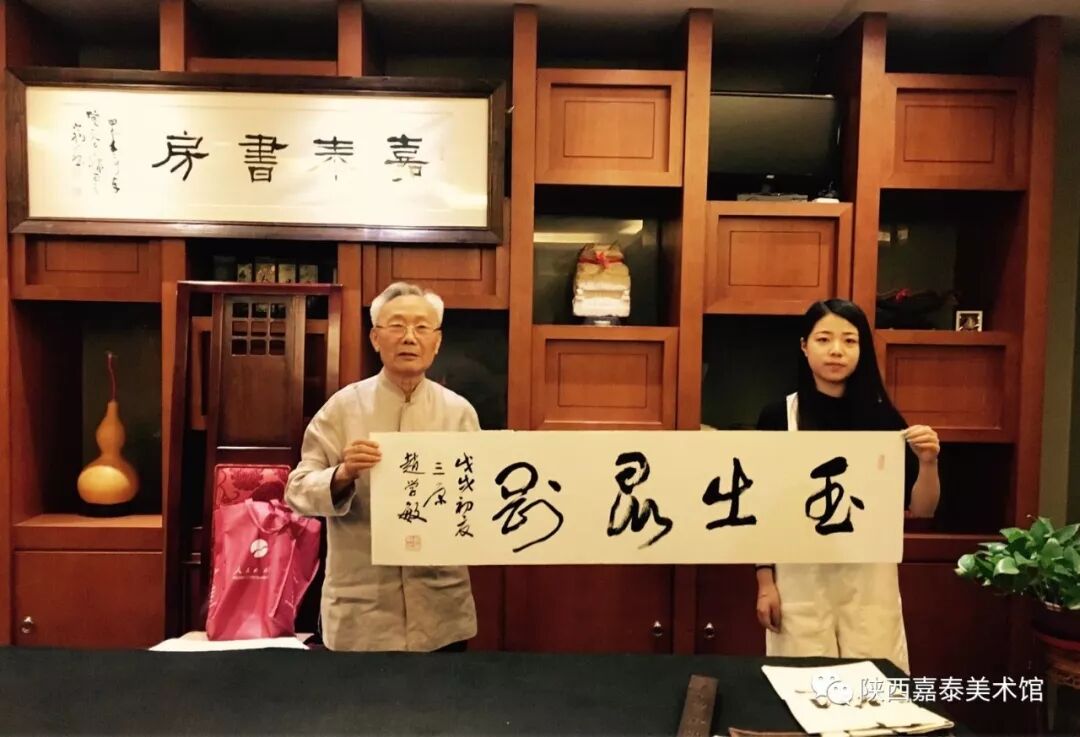 嘉泰書房
玉出昆岡
戊戌初夏
三原
趙学敏
陕西嘉泰美术馆